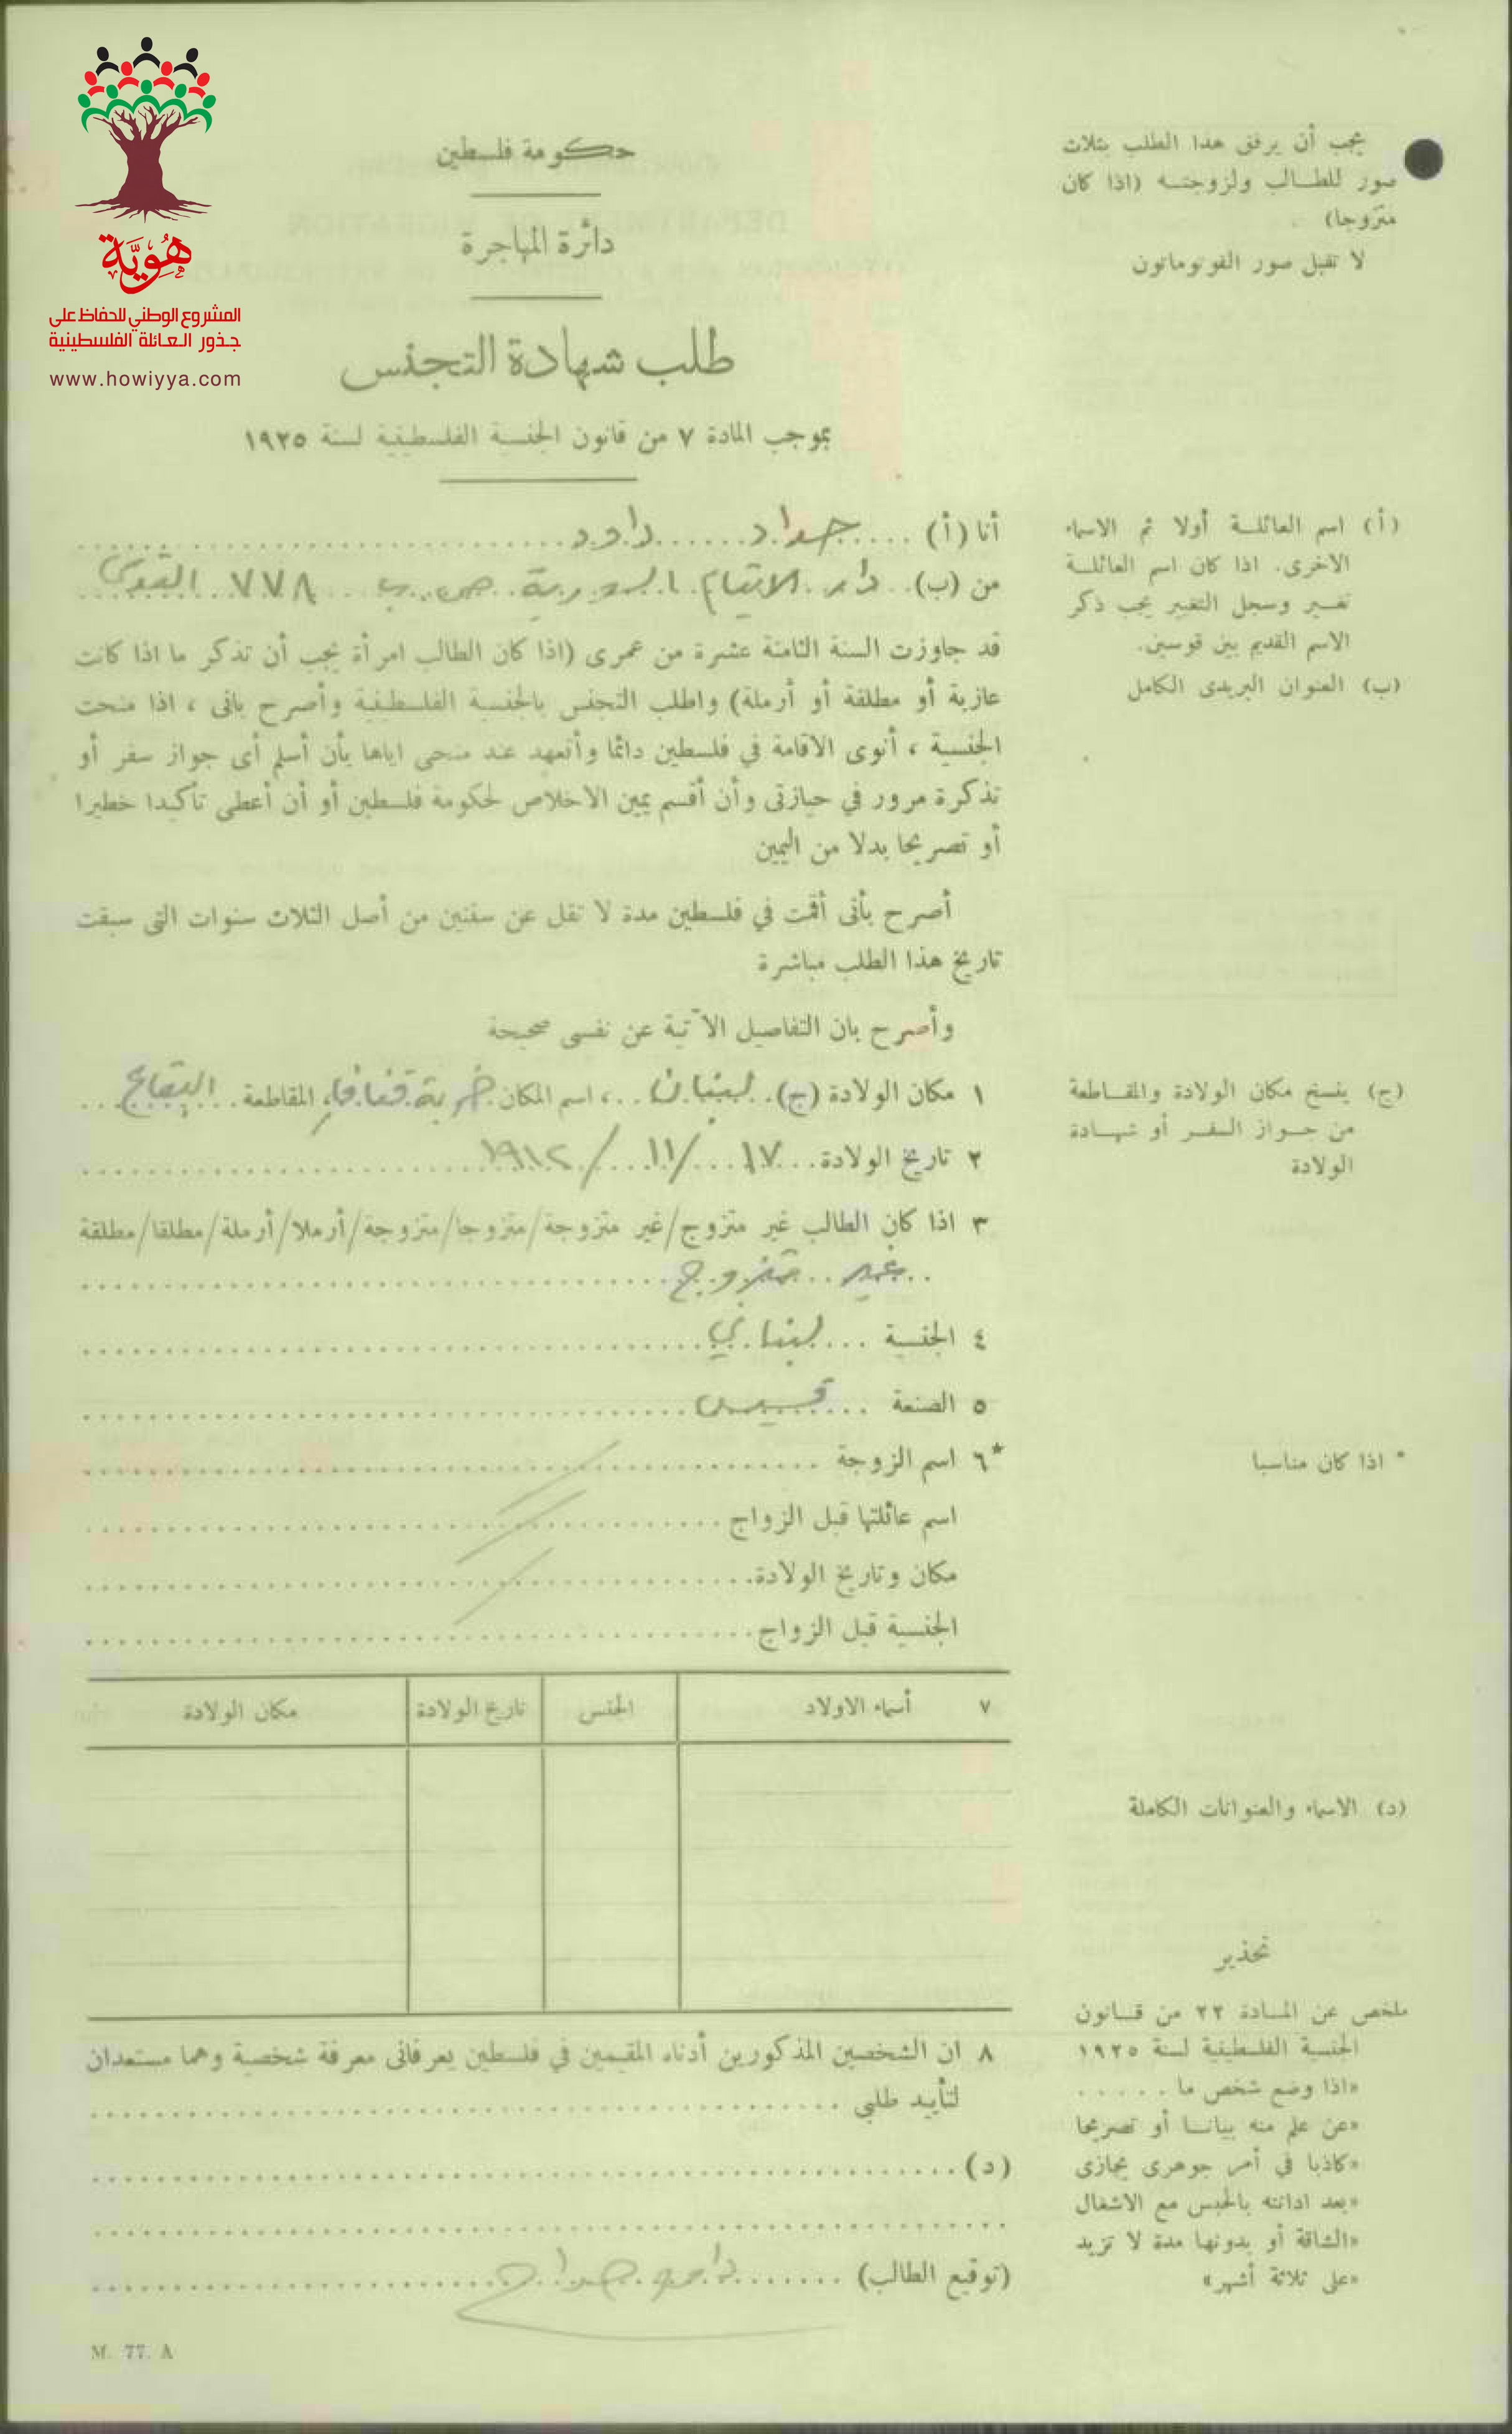 هُويَّة
المشروع الوطني للحفاظ على
جذور العائلة الفلسطينية
www.howiyya.com
حكومة فلسطين
دائرة المهاجرة
طلب شهادة التجنس
بموجب المادة ٧ من قانون الجنسية الفلسطينية لسنة ١٩٢٥
يجب أن يرفق هذا الطلب بثلاث
صور للطالب ولزوجته (اذا كان
متزوجا)
لا تقبل صور الفوتوماتون
أنا (أ) .... حداد ...... داود
من (ب) .. دار الايتام السورية ص. ب ٧٧٨ القدس
(أ) اسم العائلة أولا ثم الاسماء
الاخرى. اذا كان اسم العائلة
تغير وسجل التغيير يجب ذكر
الاسم القديم بين قوسين.
(ب) العنوان البريدى الكامل
قد جاوزت السنة الثامنة عشرة من عمرى (اذا كان الطالب امرأة يجب أن تذكر ما اذا كانت
عازبة أو مطلقة أو أرملة) واطلب التجنس بالجنسية الفلسطينية وأصرح بانى ، اذا منحت
الجنسية ، أنوى الاقامة في فلسطين دائما وأتعهد عند منحى اياها بأن أسلم أى جواز سفر أو
تذكرة مرور في حيازتى وأن أقسم يمين الاخلاص لحكومة فلسطين أو أن أعطى تأكيدا خطيرا
أو تصريحا بدلا من اليمين
أصرح بأنى أقمت في فلسطين مدة لا تقل عن سنتين من أصل الثلاث سنوات التى سبقت
تاريخ هذا الطلب مباشرة
وأصرح بان التفاصيل الآتية عن نفسى صحيحة
١ مكان الولادة (ج) . لبنان ..، اسم المكان خربة قنافار، المقاطعة . البقاع
(ج) ينسخ مكان الولادة والمقاطعة
من جواز السفر أو شهادة
الولادة
٢ تاريخ الولادة .... ١٧ / ١١ / ١٩١٢
٣ اذا كان الطالب غير متزوج/غير متزوجة/متزوجا/متزوجة/أرملا/أرملة/مطلقا/مطلقة
.. غير .. متزوج
٤ الجنسية ... لبناني
٥ الصنعة ... قسيس
*٦ اسم الزوجة
* اذا كان مناسبا
اسم عائلتها قبل الزواج
مكان وتاريخ الولادة
الجنسية قبل الزواج
٧ أسماء الاولاد الجنس تاريخ الولادة مكان الولادة
(د) الاسماء والعنوانات الكاملة
٨ ان الشخصين المذكورين أدناه المقيمين في فلسطين يعرفانى معرفة شخصية وهما مستعدان
لتأييد طلبى
(د)
(توقيع الطالب) ....... داود حداد
تحذير
ملخص عن المادة ٢٢ من قانون
الجنسية الفلسطينية لسنة ١٩٢٥
«اذا وضع شخص ما .....
«عن علم منه بيانا أو تصريحا
«كاذبا في أمر جوهرى يجازى
«بعد ادانته بالحبس مع الاشغال
«الشاقة أو بدونها مدة لا تزيد
«على ثلاثة أشهر»
M. 77. A